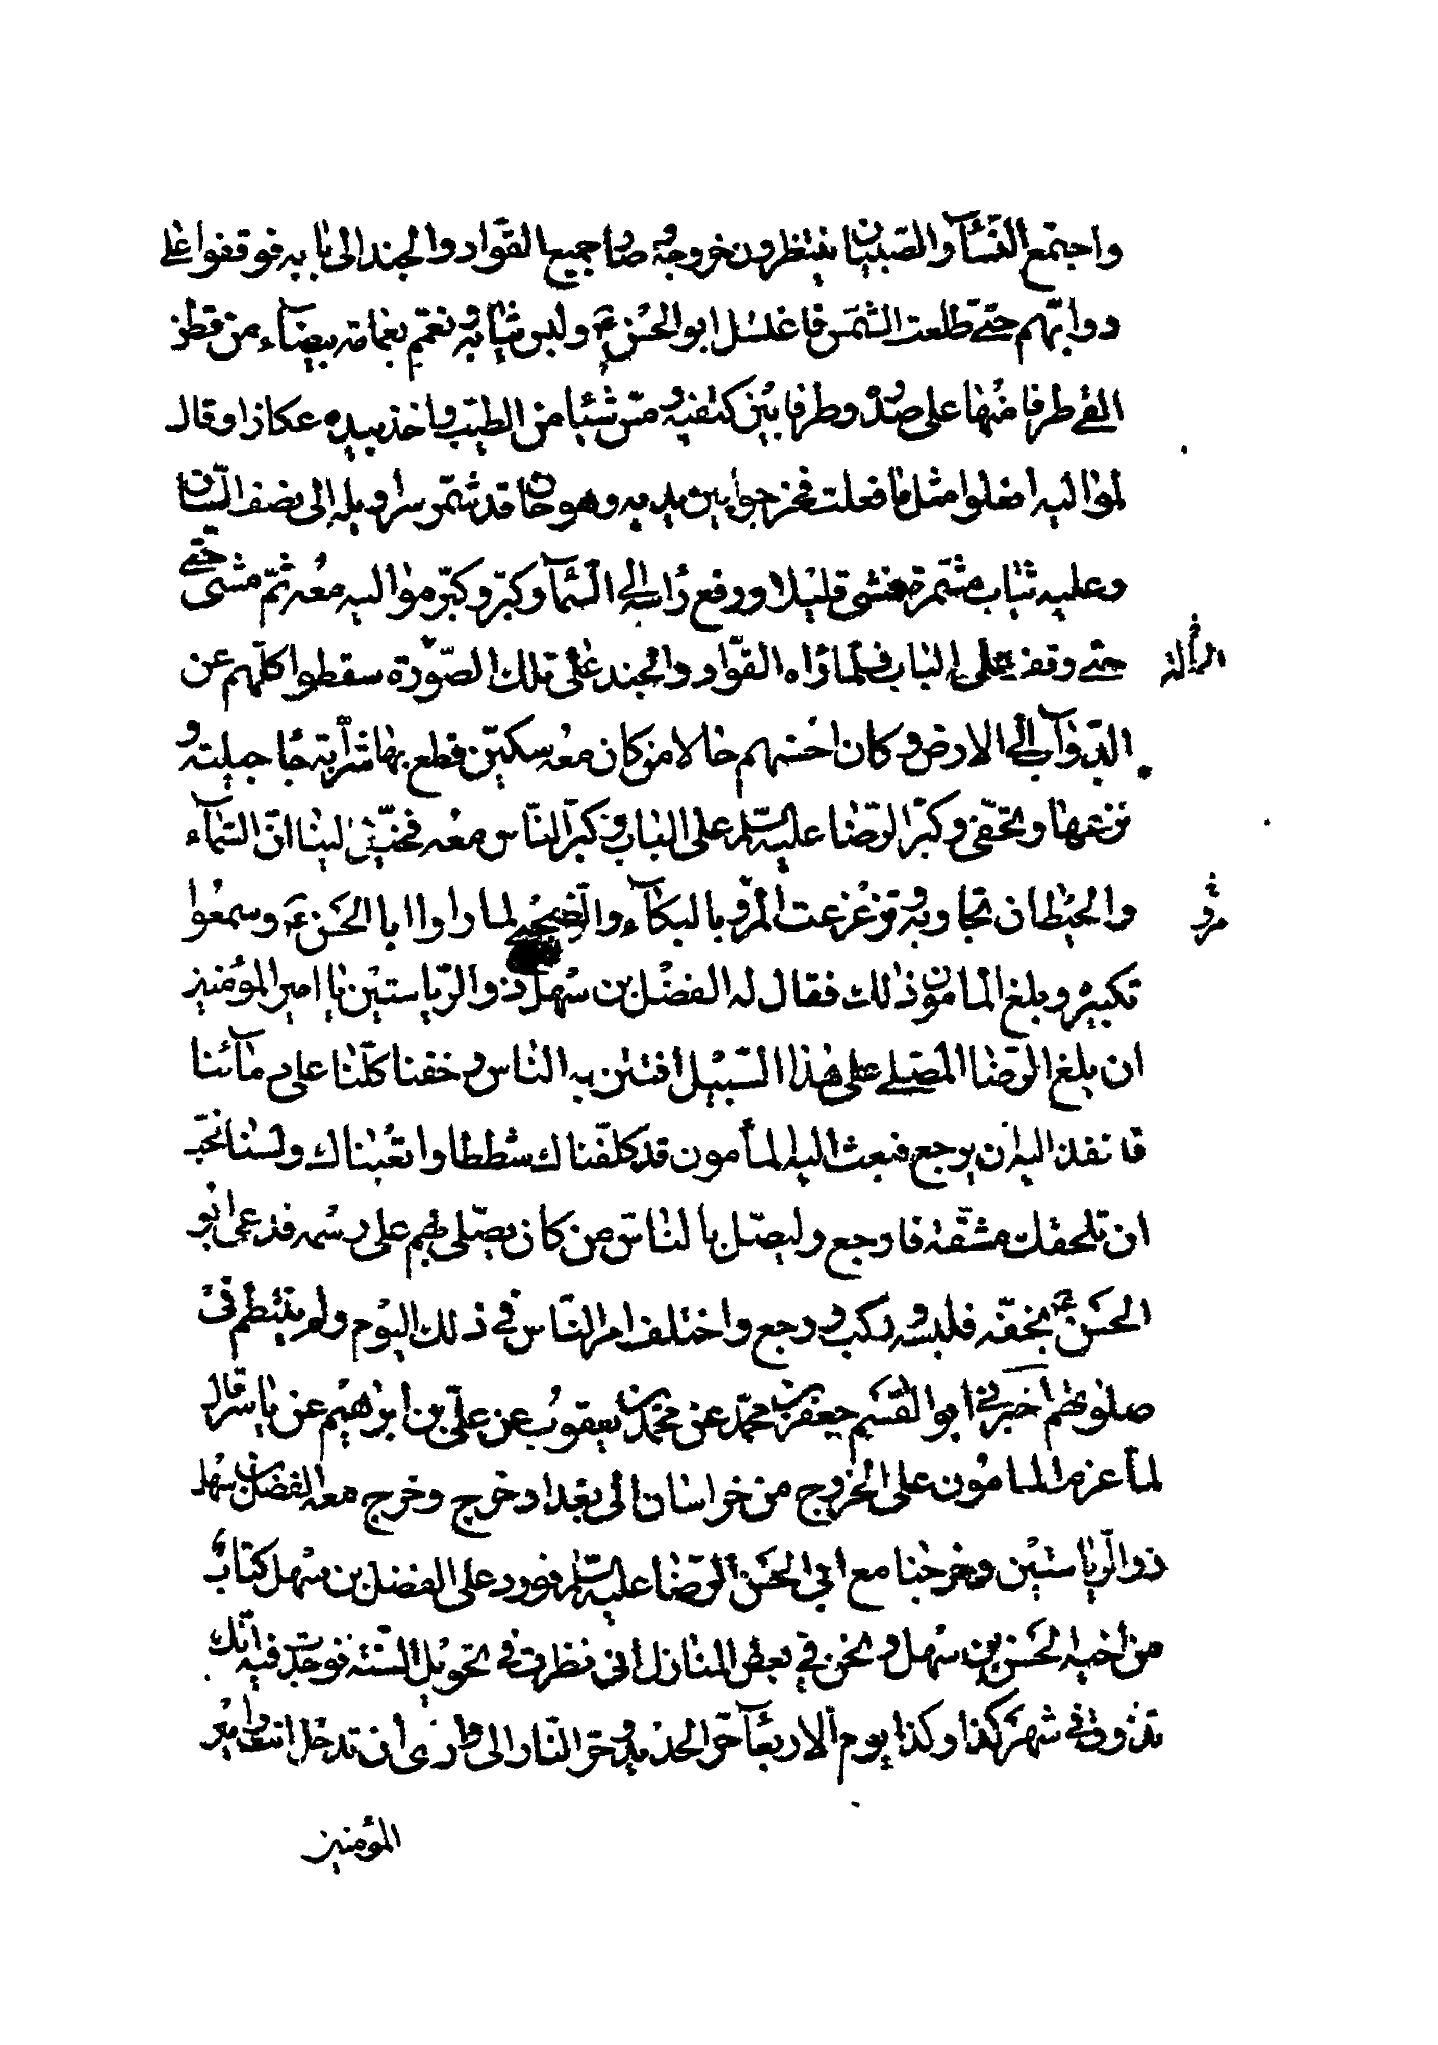 واجتمع النّسآء والصّبيان ينتظرون خروجه وصار جميع القوّاد والجند الى بابه فوقفوا على
دوابّهم حتّى طلعت الشّمس فاغتسل ابو الحسن ع ولبس ثيابه وتعمّم بعمامة بيضآء من قطن
القى طرفا منها على صدره وطرفا بين كتفيه ومسّ شيئا من الطيّب واخذ بيده عكازا وقال
لمواليه افعلوا مثل ما فعلت فخرجوا بين يديه وهو حاف قد شمّر سراويله الى نصف السّاق
وعليه ثياب مشمّرة فمشى قليلا ورفع راسه الى السّمآء وكبّر وكبّر مواليه معه ثمّ مشى حتّى
حتّى وقف على الباب فلمّا رآه القوّاد والجند على تلك الصّورة سقطوا كلّهم عن
الدّوآبّ الى الارض وكان احسنهم حالا من كان معه سكين قطع بها شرّابة جاجيلته و
نزعها وتحفّى وكبّر الرّضا عليه السّلم على الباب وكبّر النّاس معه فخيّل الينا انّ السّمآء
والحيطان تجاوبه وتزعزعت مرو بالبكآء والضّجيج لما راوا ابا الحسن ع وسمعوا
تكبيره وبلغ المامون ذلك فقال له الفضل بن سهل ذو الرّياستين يا امير المؤمنين
ان بلغ الرّضا المصلّى على هذا السّبيل افتتن به الناس وخفنا كلّنا على دمآئنا
فانفذ اليه ان يرجع فبعث اليه المأمون قد كلّفناك شططا واتعبناك ولسنا نحبّ
ان تلحقك مشقّة فارجع وليصلّ بالناس من كان يصلّى بهم على رسمه فدعى ابو
الحسن ع بخفّه فلبسه وركب ورجع واختلف امر النّاس في ذلك اليوم ولم ينتظم فى
صلوتهم اخبرني ابو القسم جعفر بن محمّد عن محمّد بن يعقوب عن علىّ بن ابرهيم عن ياسر قال
لمّا عزم المامون على الخروج من خراسان الى بغداد خرج وخرج معه الفضل بن سهل
ذو الرّياستين وخرجنا مع ابي الحسن الرّضا عليه السّلم فورد على الفضل بن سهل كتاب
من اخيه الحسن بن سهل ونحن في بعض المنازل انى نظرت في تحويل السّنة فوجدت فيه انّك
تذوق في شهر كذا وكذا يوم الاربعآء حرّ الحديد وحرّ النّار وارى ان تدخل انت وامير
المؤمنين